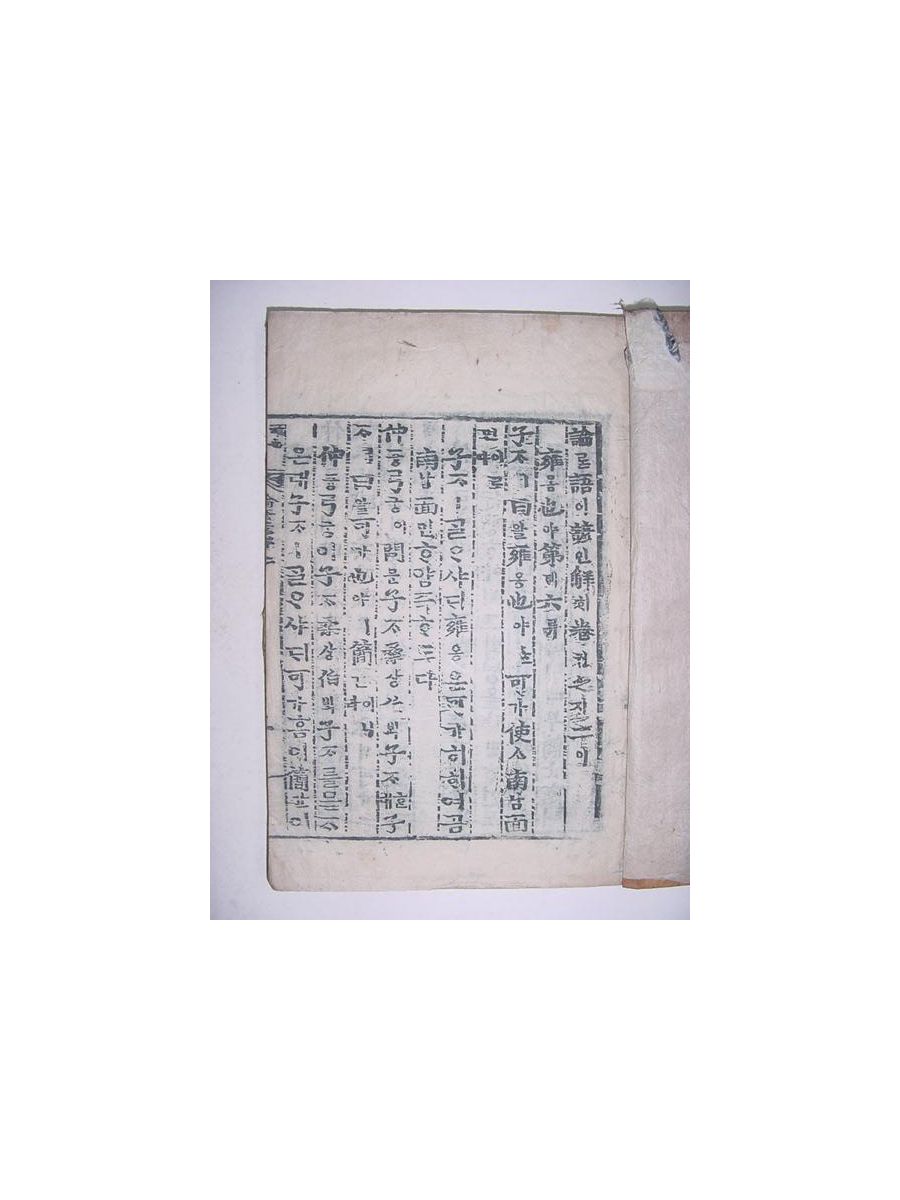 論론語어諺언解ᄒᆡ卷권之지二이
雍옹也야第뎨六륙
子ᄌᆞㅣ曰왈雍옹也야ᄂᆞᆫ可가使ᄉᆞ南남面
면이로다
子ᄌᆞㅣᄀᆞᆯᄋᆞ샤ᄃᆡ雍옹은可가히ᄒᆡ여곰
南남面면ᄒᆞ암즉ᄒᆞ도다
仲듕弓궁이問문子ᄌᆞ桑상伯ᄇᆡᆨ子ᄌᆞᄒᆞᆫ대子
ᄌᆞㅣ曰왈可가也야ㅣ簡간이니라
仲듕弓궁이子ᄌᆞ桑상伯ᄇᆡᆨ子ᄌᆞ를묻ᄌᆞ
온대子ᄌᆞㅣᄀᆞᆯᄋᆞ샤ᄃᆡ可가홈이簡간이